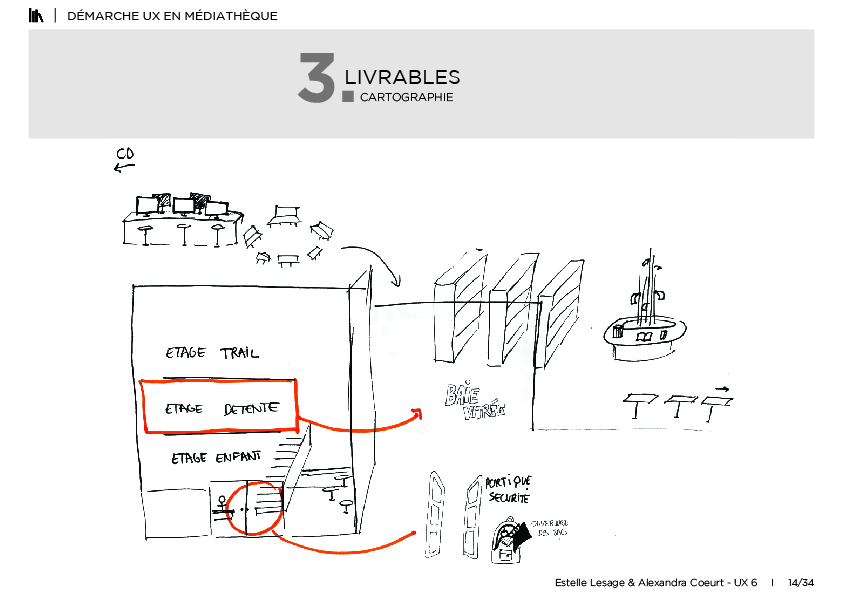 DÉMARCHE UX EN MÉDIATHÈQUE
3. LIVRABLES
CARTOGRAPHIE
CD
ETAGE TRAIL
ETAGE DETENTE
ETAGE ENFANT
BAIE
VITRÉE
PORTIQUE
SECURITE
OUVERTURE
DES SACS
Estelle Lesage & Alexandra Coeurt - UX 6 I 14/34